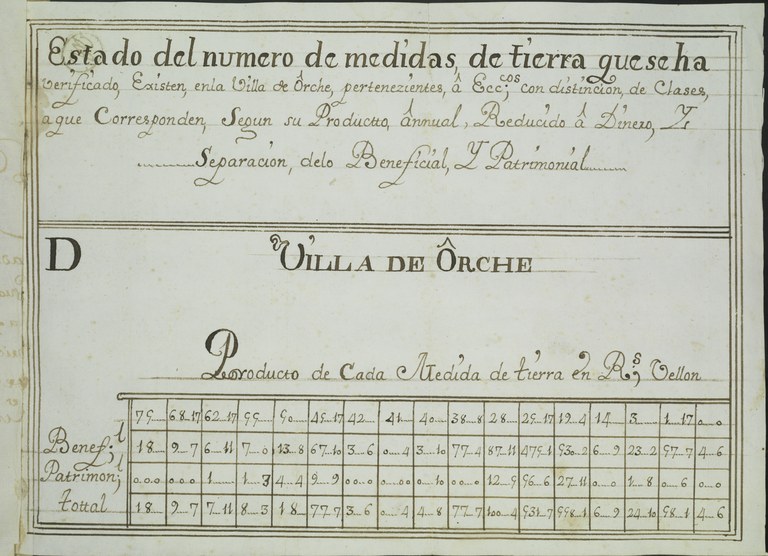 Estado del numero de medidas, de tierra que se ha
verificado, Existen, en la Villa de Ôrche, pertenezientes, â Ecc;cos con distincion, de Clases,
a que Corresponden, Segun su Producto, Ânnual, Reducido â Dinero, Y
Separacion, delo Beneficial, Y Patrimonial
D VILLA DE ÔRCHE
Producto de Cada Medida de tierra en Rs; Vellon
75 68..17 62..17 55 50 45..17 42 41 40 38..8 28 25..17 19..4 14 3 1..17 0..0
Benef;l 18 9..7 6..11 7..0 13..8 67..10 3..6 0..4 3..10 77..4 87..11 475..1 530..2 6..9 23..2 57..7 4..6
Patrimon;l 0..0 0..0 1 1..3 4..4 9..9 0..0 0..0 0..10 0..0 12..5 56..6 27..11 0..0 1..8 0..6 0..0
tottal 18 9..7 7..11 8..3 18 77..7 3..6 0..4 4..8 77..7 100..4 531..7 558..1 6..9 24..10 58..1 4..6